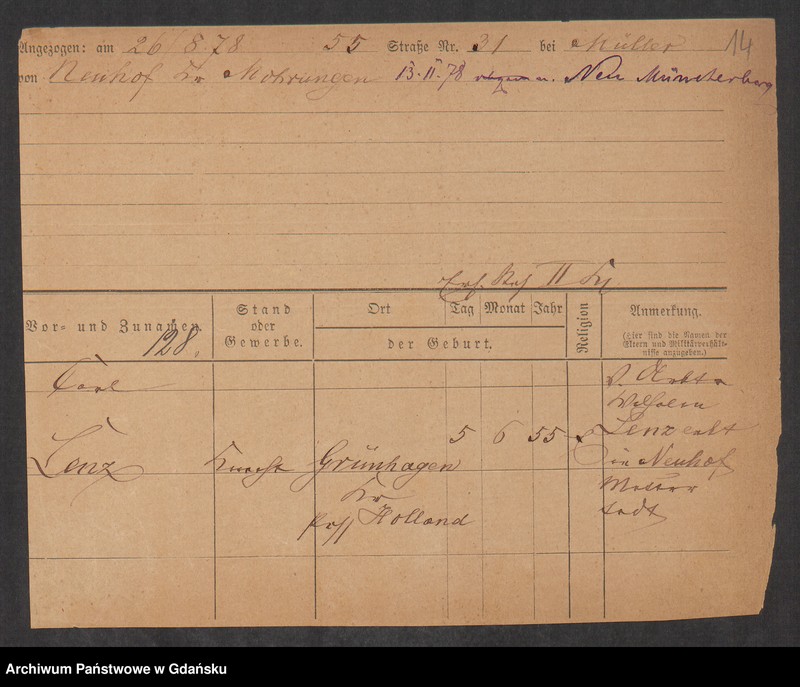 Angezogen: am 26/8.78 55 Straße Nr. 31 bei Müller 14
von Neuhof Kr Mohrungen 13.II.78 n. Neu Münsterberg
II
Vor- und Zunamen. 128.
Stand
oder
Gewerbe.
Ort Tag Monat Jahr
der Geburt.
Religion
Anmerkung.
(Hier sind die Namen der
Eltern und Militärverhält-
nisse anzugeben.)
Carl
Lenz
Knecht
Grünhagen
Kr
Pr Holland
5 6 55
V.
Wilhelm
Lenz
in Neuhof
Mutter
todt